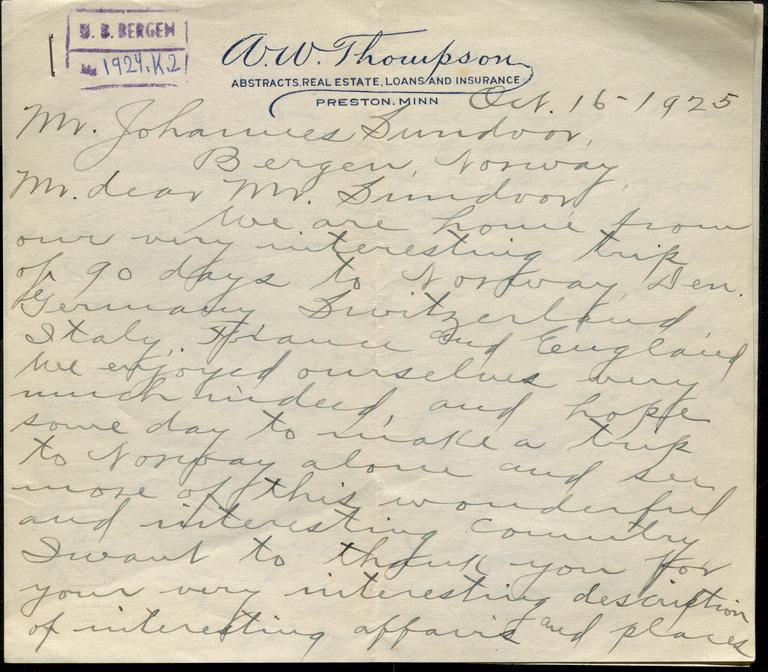 U. B. BERGEN
No. 1924.K.2
A. W. Thompson
ABSTRACTS, REAL ESTATE, LOANS AND INSURANCE
PRESTON, MINN
Oct. 16-1925
Mr. Johannes Sundvor,
Bergen, Norway,
My dear Mr. Sundvor,
We are home from
our very interesting trip
of 90 days to Norway, Den.
Germany Switzerland,
Italy, France and England
We enjoyed ourselves very
much indeed, and hope
some day to make a trip
to Norway alone and see
more of this wonderful
and interesting country
I want to thank you for
your very interesting description
of interesting affairs and places